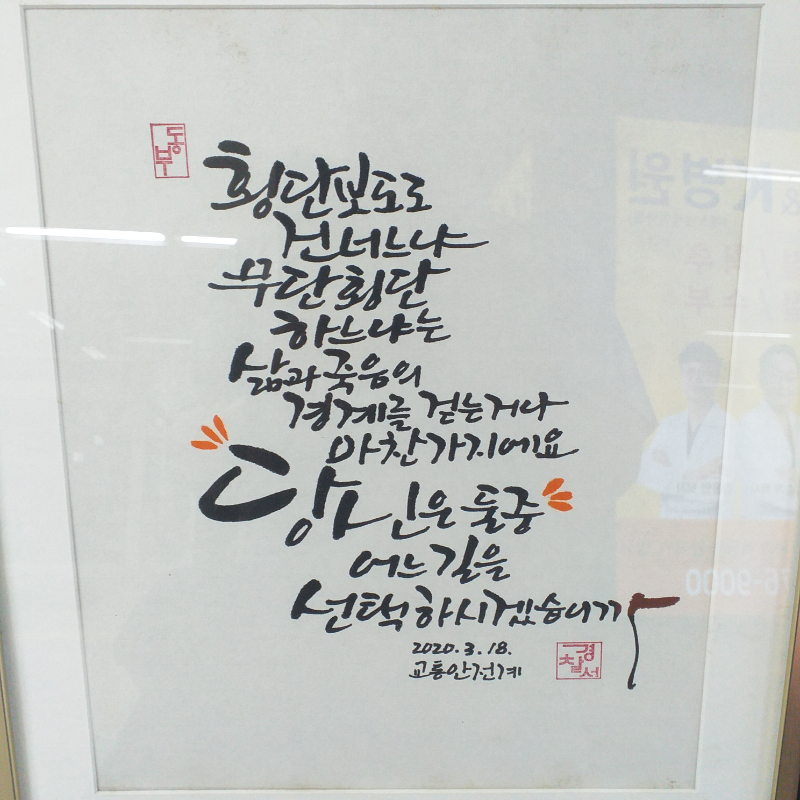 동부
횡단보도로
건너느냐
무단횡단
하느냐는
삶과 죽음의
경계를 걷는거나
마찬가지에요
당신은 둘중
어느길을
선택하시겠습니까
2020.3.18.
교통안전계
경찰서
병원
76-9000